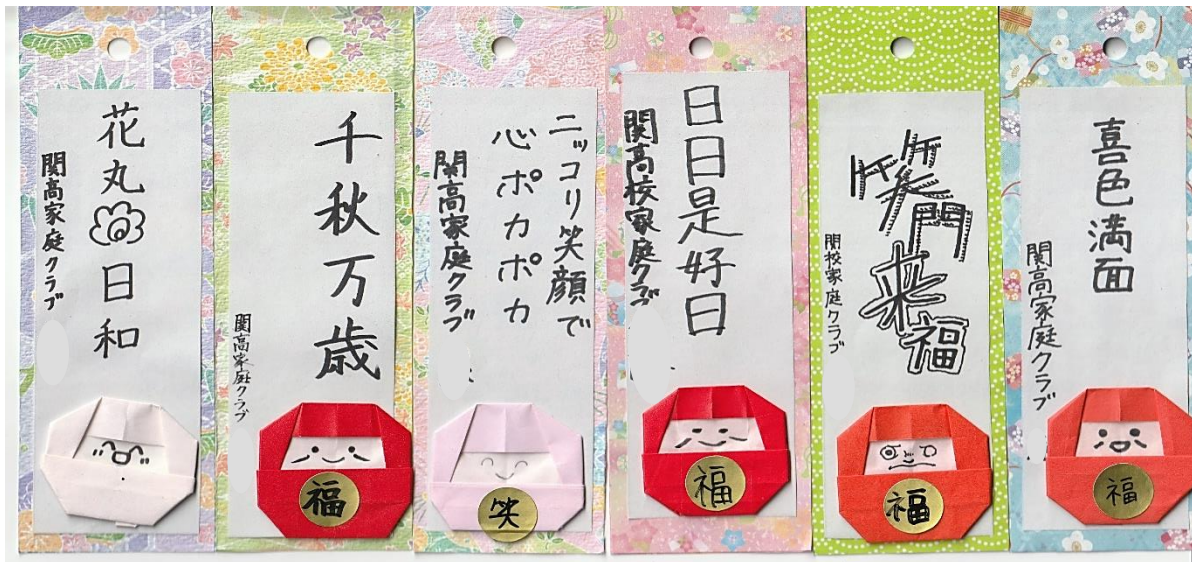 花丸日和
関高家庭クラブ
千秋万歳
関高家庭クラブ
福
ニッコリ笑顔で
心ポカポカ
関高家庭クラブ
笑
日日是好日
関高校家庭クラブ
福
笑門来福
関校家庭クラブ
福
喜色満面
関高家庭クラブ
福